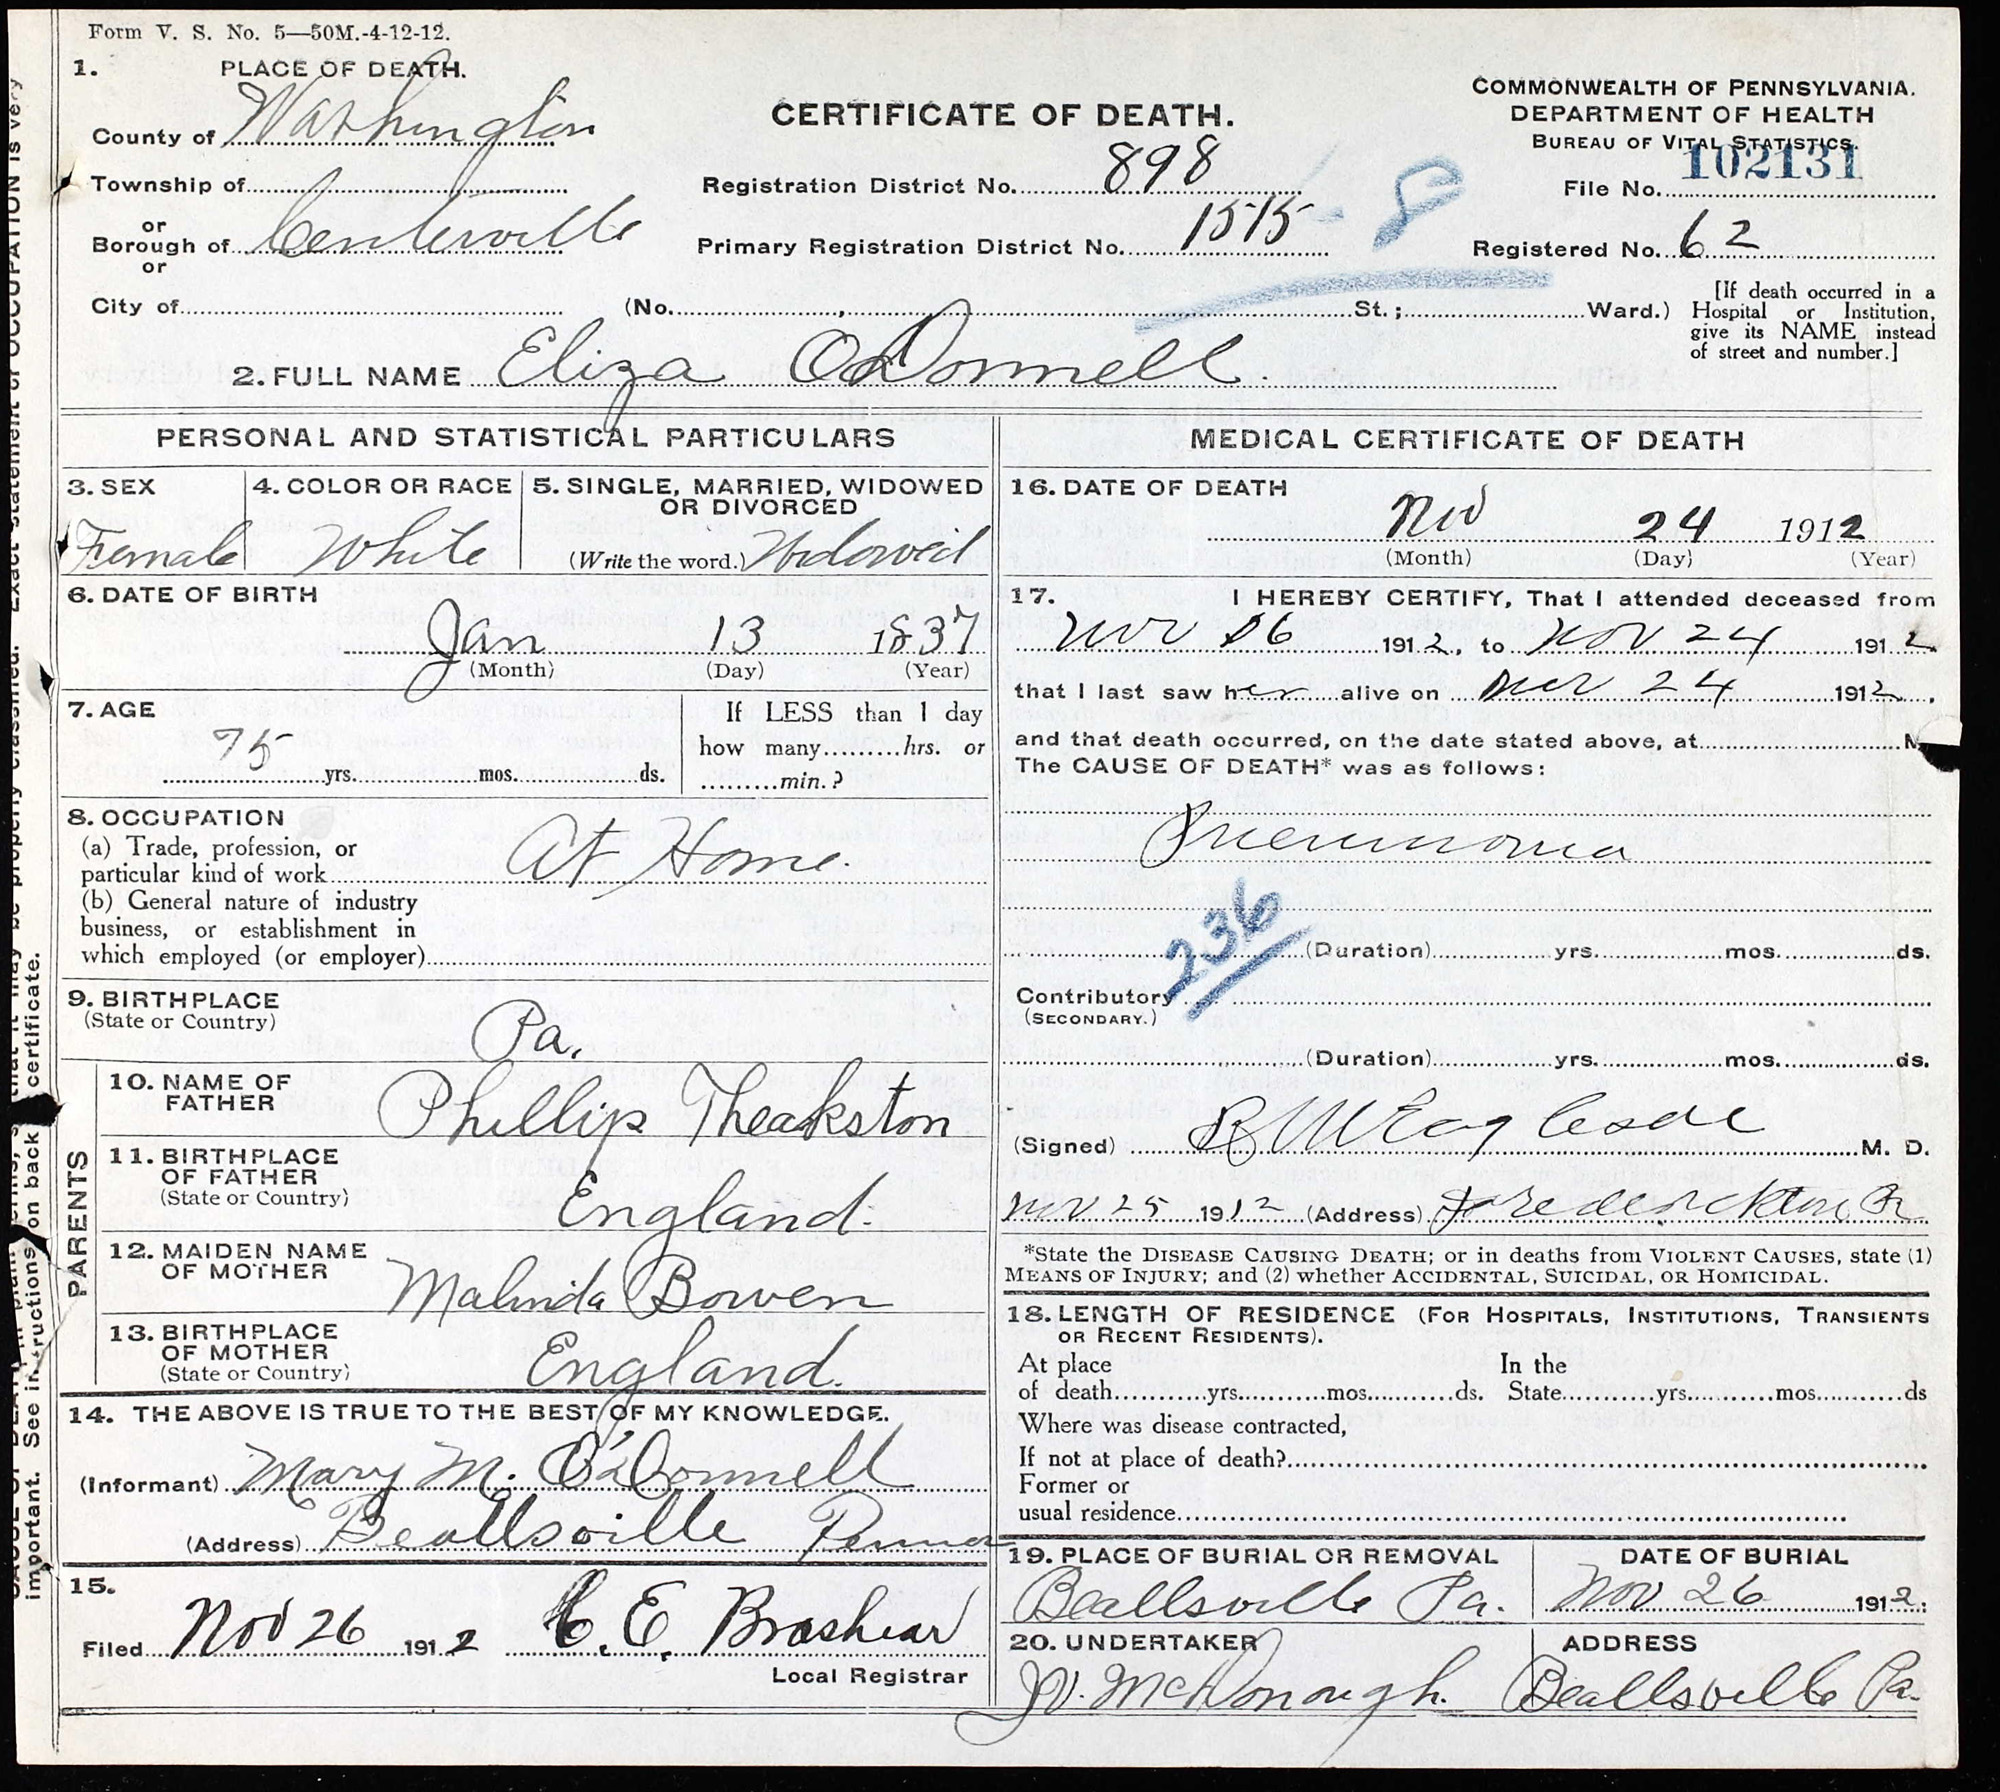 Form V. S. No. 5—50M.-4-12-12.
1. PLACE OF DEATH.
County of Washington
Township of
or
Borough of Centerville
or
City of
CERTIFICATE OF DEATH.
Registration District No. 898
Primary Registration District No. 1515
8
(No. , St.; Ward.)
COMMONWEALTH OF PENNSYLVANIA.
DEPARTMENT OF HEALTH
BUREAU OF VITAL STATISTICS.
File No. 102131
Registered No. 62
[If death occurred in a
Hospital or Institution,
give its NAME instead
of street and number.]
2. FULL NAME Eliza O'Donnell.
PERSONAL AND STATISTICAL PARTICULARS
3. SEX
Female
4. COLOR OR RACE
White
5. SINGLE, MARRIED, WIDOWED
OR DIVORCED
(Write the word.) Widowed
6. DATE OF BIRTH
Jan 13 1837
(Month) (Day) (Year)
7. AGE
75 yrs. mos. ds.
If LESS than 1 day
how many hrs. or
min.?
8. OCCUPATION
(a) Trade, profession, or
particular kind of work At Home.
(b) General nature of industry
business, or establishment in
which employed (or employer)
9. BIRTHPLACE
(State or Country)
Pa.
PARENTS
10. NAME OF
FATHER
Phillip Theakston
11. BIRTHPLACE
OF FATHER
(State or Country)
England.
12. MAIDEN NAME
OF MOTHER
Malinda Bowen
13. BIRTHPLACE
OF MOTHER
(State or Country)
England.
14. THE ABOVE IS TRUE TO THE BEST OF MY KNOWLEDGE.
(Informant) Mary M. O'Donnell
(Address) Beallsville Penna
15.
Filed Nov 26 1912 C. E. Brashear
Local Registrar
MEDICAL CERTIFICATE OF DEATH
16. DATE OF DEATH
Nov 24 1912
(Month) (Day) (Year)
17. I HEREBY CERTIFY, That I attended deceased from
Nov 16 1912, to Nov 24 1912
that I last saw her alive on Nov 24 1912,
and that death occurred, on the date stated above, at M.
The CAUSE OF DEATH* was as follows:
Pneumonia
236
(Duration) yrs. mos. ds.
Contributory
(SECONDARY.)
(Duration) yrs. mos. ds.
(Signed) M. D.
Nov 25 1912 (Address) Fredericktown Pa
*State the DISEASE CAUSING DEATH; or in deaths from VIOLENT CAUSES, state (1)
MEANS OF INJURY; and (2) whether ACCIDENTAL, SUICIDAL, OR HOMICIDAL.
18. LENGTH OF RESIDENCE (FOR HOSPITALS, INSTITUTIONS, TRANSIENTS
OR RECENT RESIDENTS).
At place In the
of death yrs. mos. ds. State yrs. mos. ds
Where was disease contracted,
If not at place of death?
Former or
usual residence
19. PLACE OF BURIAL OR REMOVAL
Beallsville Pa.
DATE OF BURIAL
Nov 26 1912
20. UNDERTAKER
McDonough.
ADDRESS
Beallsville Pa.
important. See instructions on back of certificate.